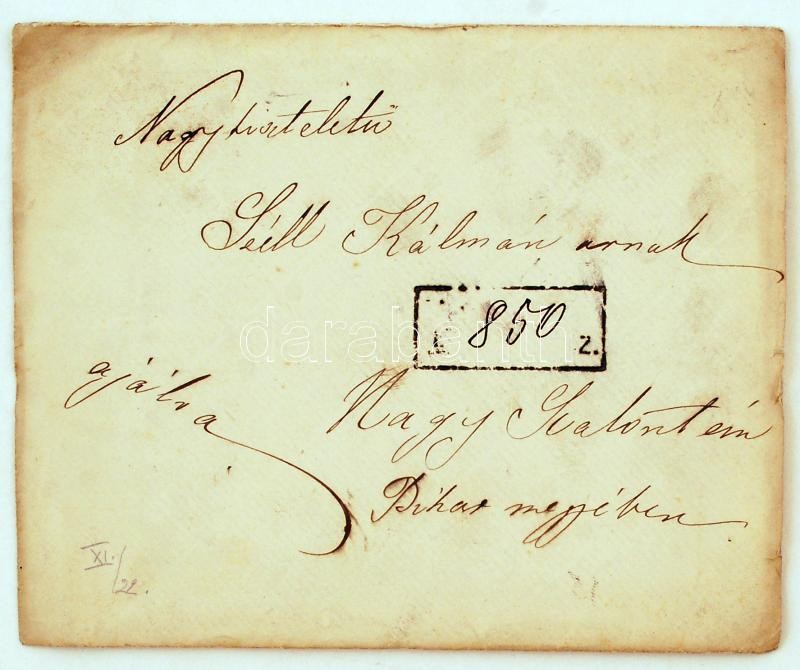 Nagytiszteletű
Széll Kálmán urnak
850
z.
ajálva
Nagy Szalontán
Bihar megyében
XI./22.
darabanth